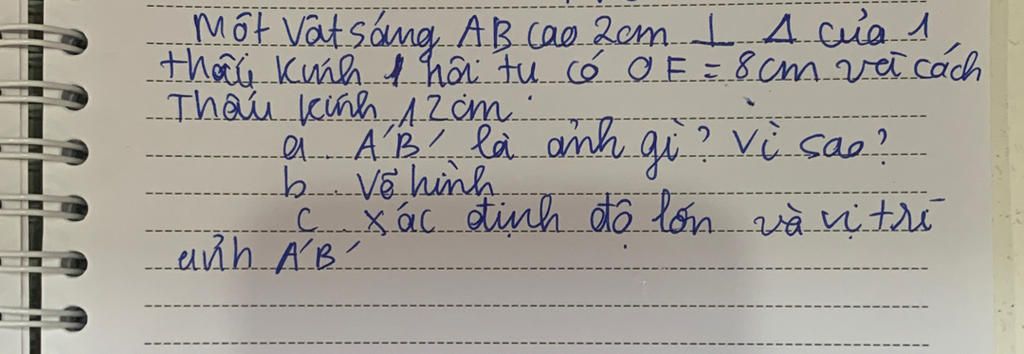 Một vật sáng AB cao 2cm ⊥ Δ của 1
thấu kính hội tụ có OF = 8cm và cách
Thấu kính 12cm.
a. A'B' là ảnh gì? Vì sao?
b. Vẽ hình
c. Xác định độ lớn và vị trí
ảnh A'B'